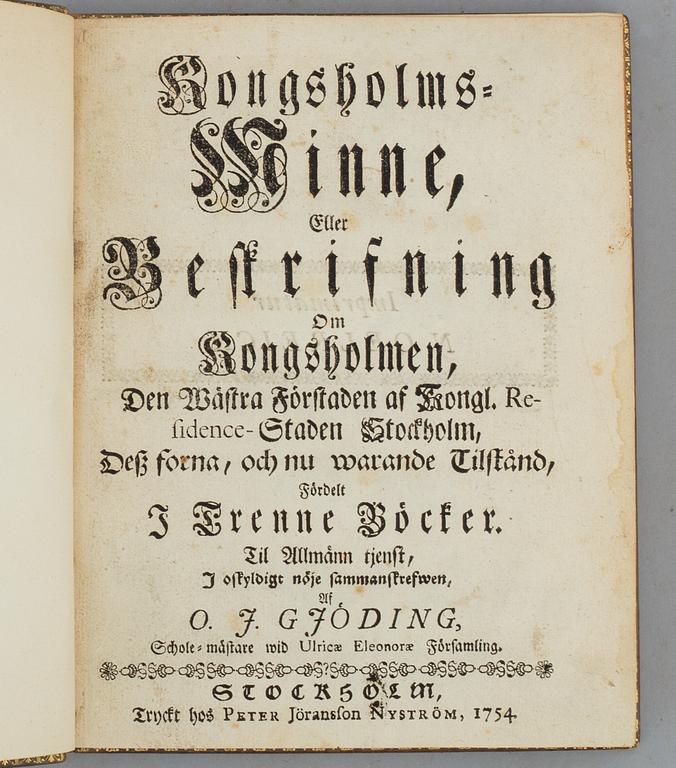 Kongsholms-
Minne,
Eller
Beskrifning
Om
Kongsholmen,
Den Wästra Förstaden af Kongl. Re-
sidence-Staden Stockholm,
Deß forna, och nu warande Tilstånd,
Fördelt
I Trenne Böcker.
Til Allmänn tjenst,
I oskyldigt nöje sammanskrefwen,
Af
O. J. GJÖDING,
Schole-mästare wid Ulricæ Eleonoræ Församling.
STOCKHOLM,
Tryckt hos PETER Jöransson NYSTRÖM, 1754.